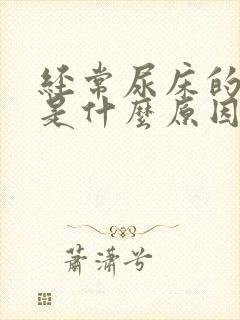 经常尿床的
是什麼原因
蕭瀟兮